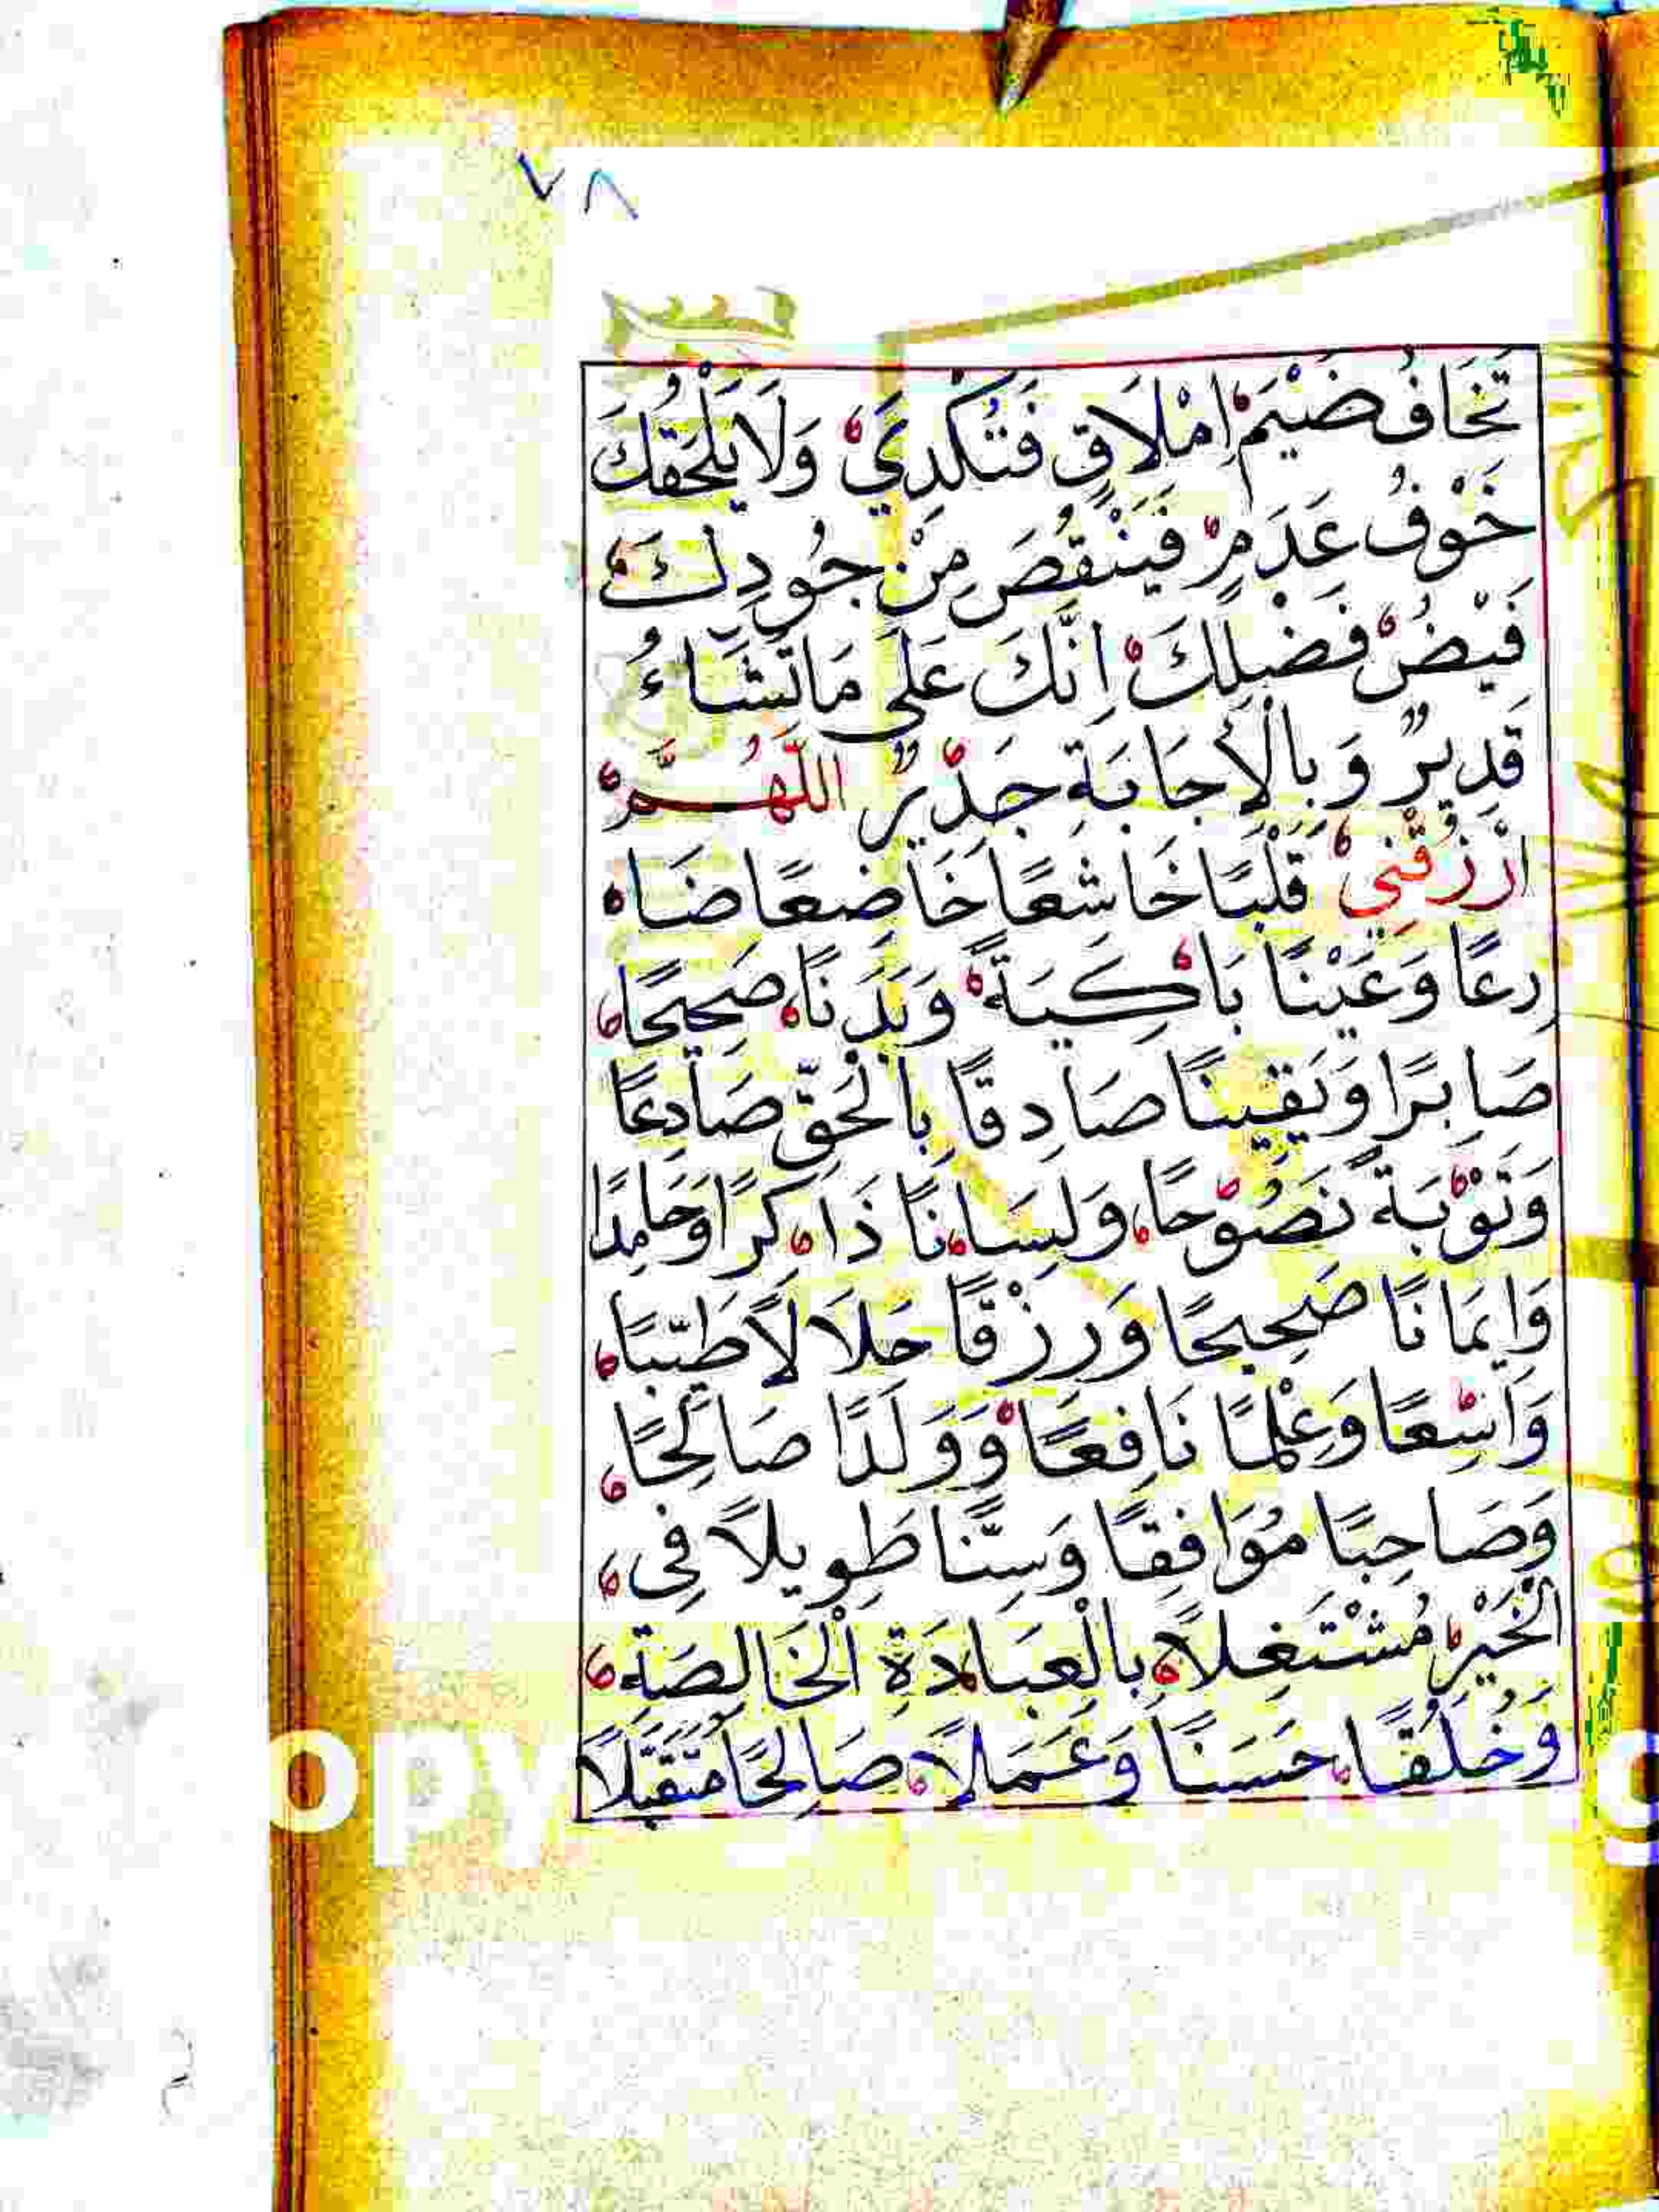 ٧٨
تَخَافُ ضَيْمَ اِمْلَاقٍ فَتُكْدِيَ وَلَا يَلْحَقُكَ
خَوْفُ عَدَمٍ فَيَنْقُصَ مِنْ جُودِكَ
فَيْضُ فَضْلِكَ اِنَّكَ عَلٰى مَا تَشَاءُ
قَدِيرٌ وَبِالْاِجَابَةِ جَدِيْرٌ اَللّٰهُمَّ
ارْزُقْنِي قَلْبًا خَاشِعًا خَاضِعًا ضَا
رِعًا وَعَيْنًا بَاكِيَةً وَبَدَنًا صَحِيحًا
صَابِرًا وَيَقِينًا صَادِقًا بِالْحَقِّ صَادِعًا
وَتَوْبَةً نَصُوْحًا وَلِسَانًا ذَاكِرًا وَحَامِدًا
وَاِيمَانًا صَحِيحًا وَرِزْقًا حَلَالًا طَيِّبًا
وَاسِعًا وَعِلْمًا نَافِعًا وَوَلَدًا صَالِحًا
وَصَاحِبًا مُوَافِقًا وَسِنًّا طَوِيلًا فِى
الْخَيْرِ مُشْتَغِلًا بِالْعِبَادَةِ الْخَالِصَةِ
وَخُلُقًا حَسَنًا وَعَمَلًا صَالِحًا مُتَقَبَّلًا
opy